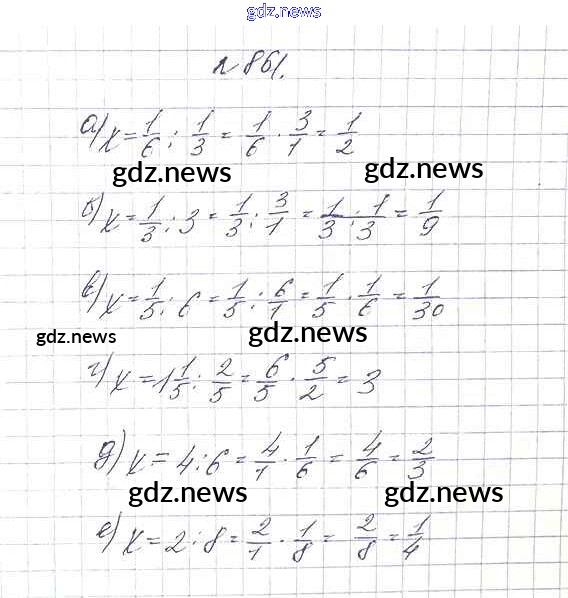 gdz.news
№ 861.
а) x = 1/6 : 1/3 = 1/6 · 3/1 = 1/2
gdz.news gdz.news
б) x = 1/3 : 3 = 1/3 : 3/1 = 1/3 · 1/3 = 1/9
в) x = 1/5 : 6 = 1/5 : 6/1 = 1/5 · 1/6 = 1/30
gdz.news gdz.news
г) x = 1 1/5 : 2/5 = 6/5 · 5/2 = 3
д) x = 4 : 6 = 4/1 · 1/6 = 4/6 = 2/3
gdz.news gdz.news
е) x = 2 : 8 = 2/1 · 1/8 = 2/8 = 1/4